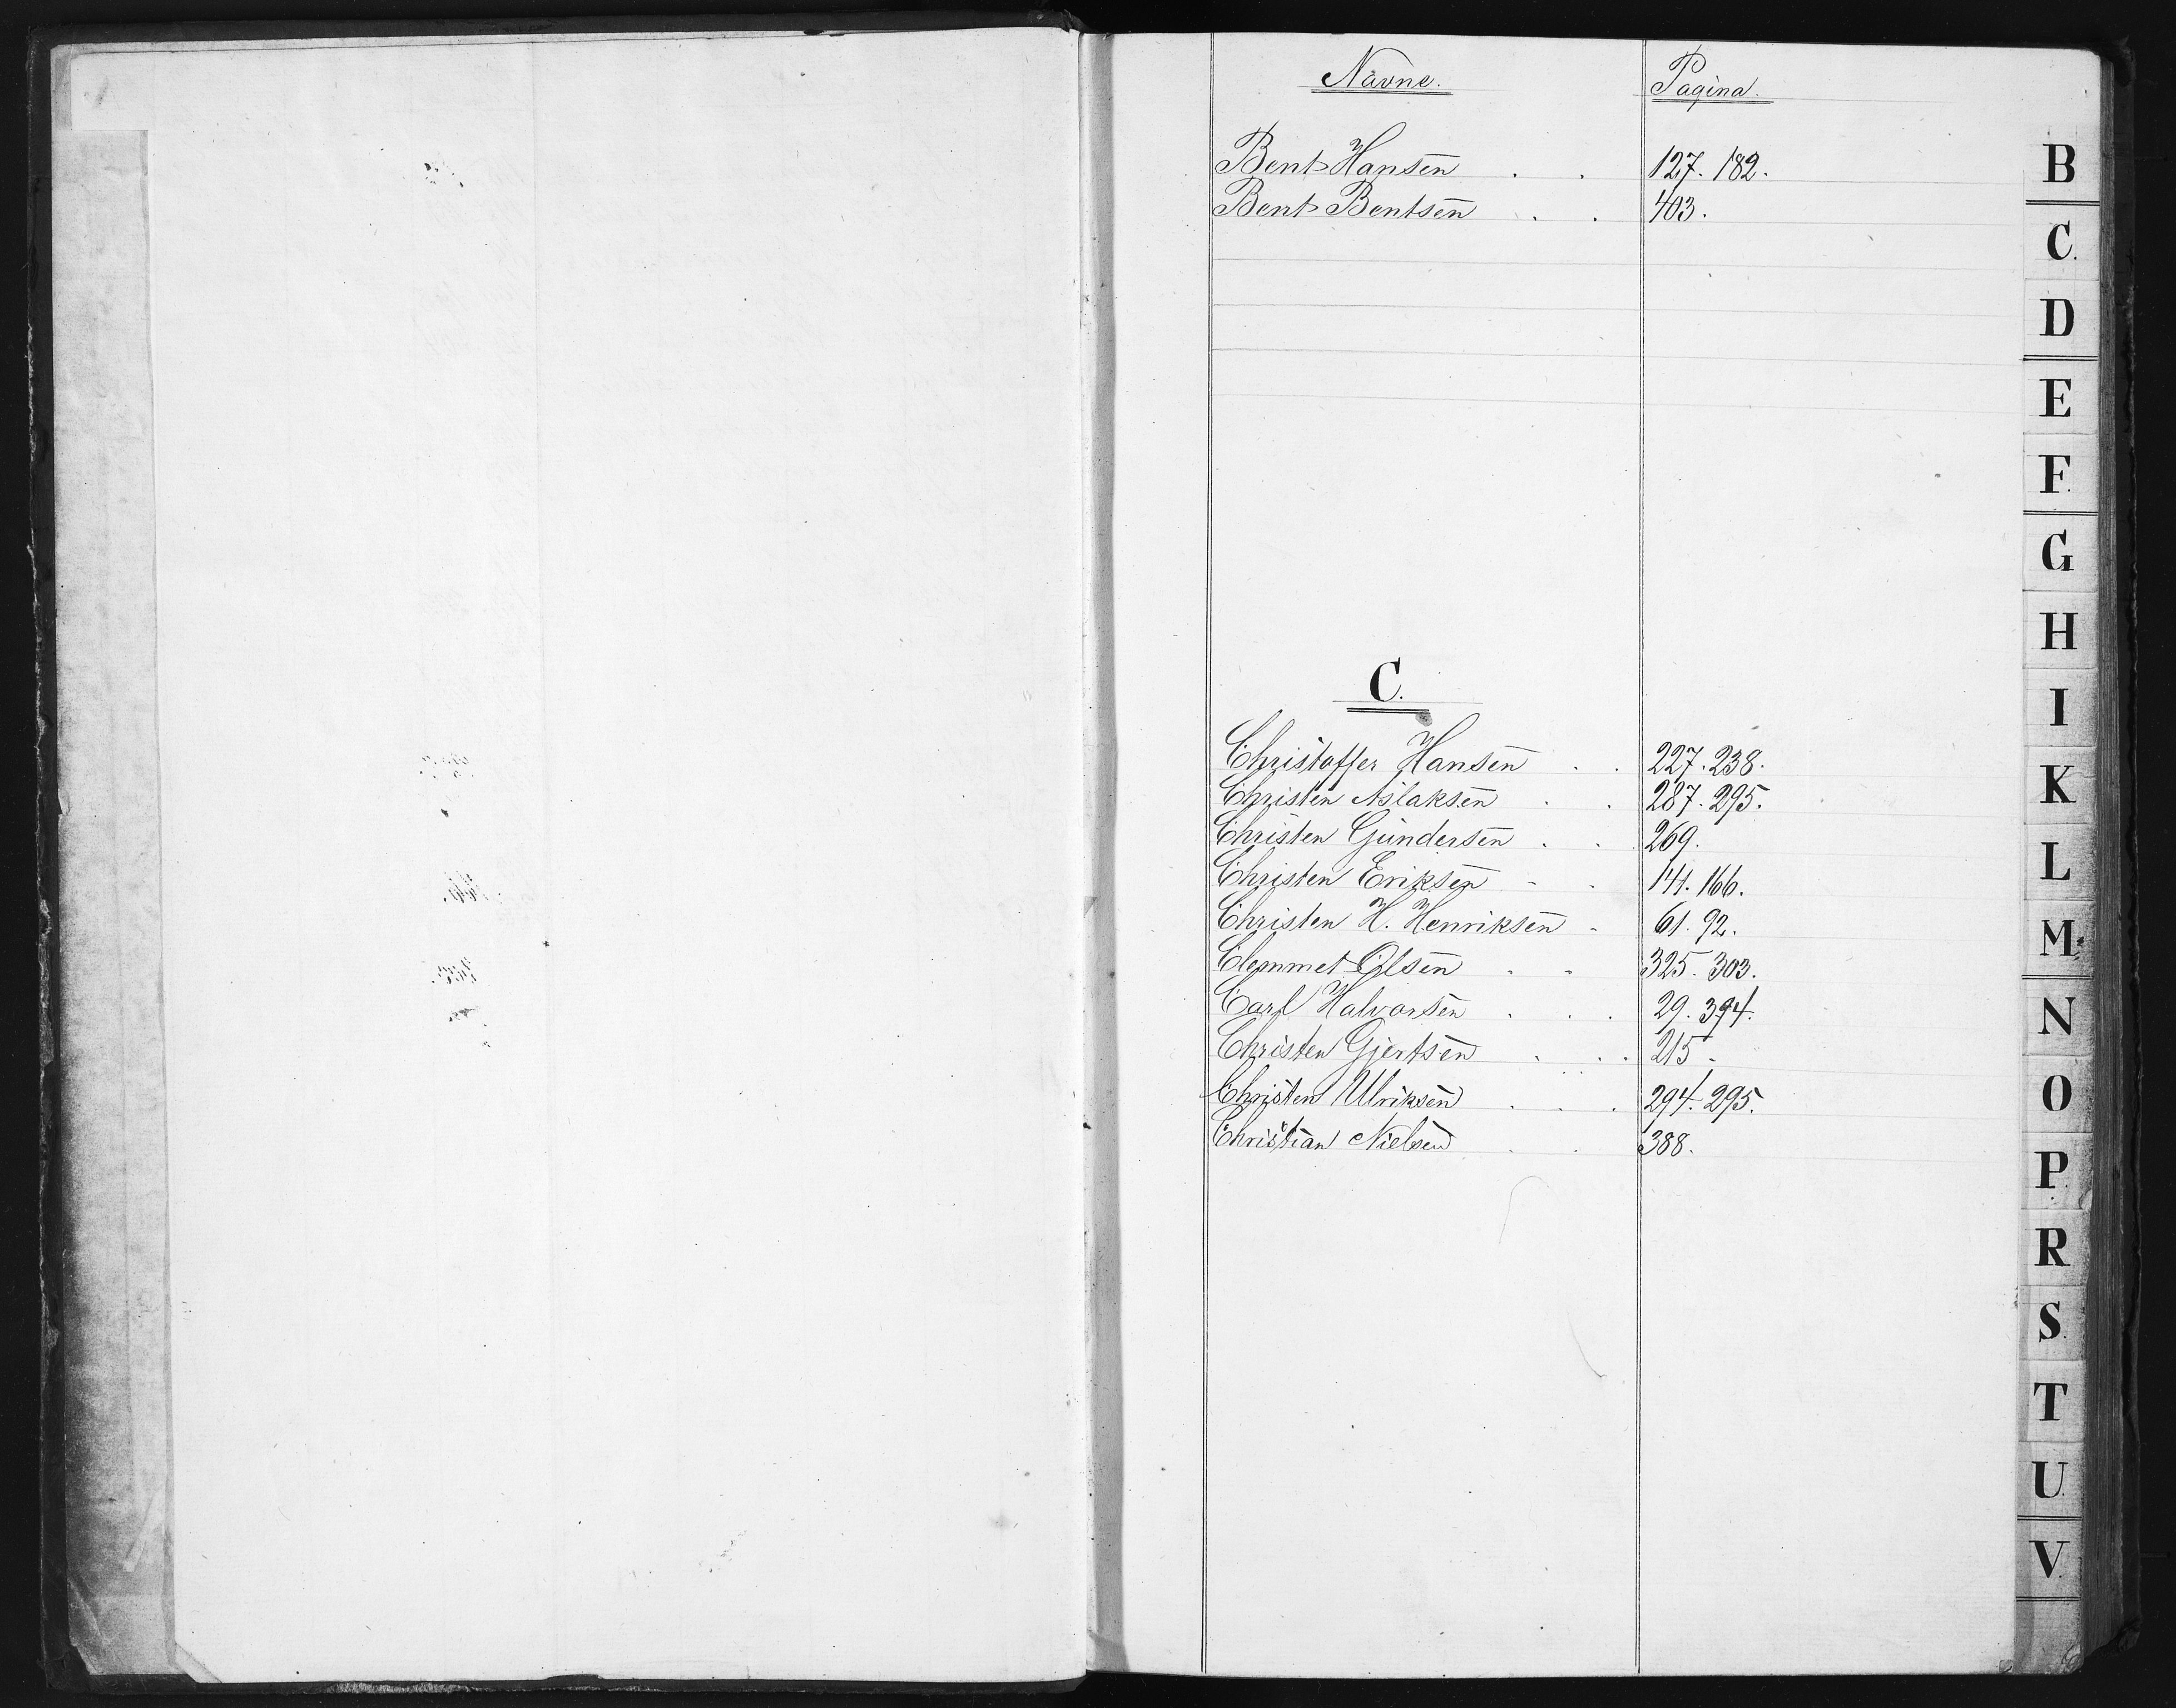 Navne. Pagina.
Bent Hansen . . 127. 182.
Bent Bentsen . . 403.
C.
Christoffer Hansen . . 227. 238.
Christen Aslaksen . . 287. 295.
Christen Gundersen . . 269.
Christen Eriksen - . 141. 166.
Christen H. Henriksen - 61. 92.
Clemmet Olsen . - 325. 303.
Carl Halvorsen . . . 29. 394.
Christen Gjertsen . . . 215 -
Christen Ulriksen . . . 294. 295.
Christian Nielsen . . 388.
B
C.
D
E
F.
G
H
I
K
L
M
N
O
P.
R
S.
T
U.
V.